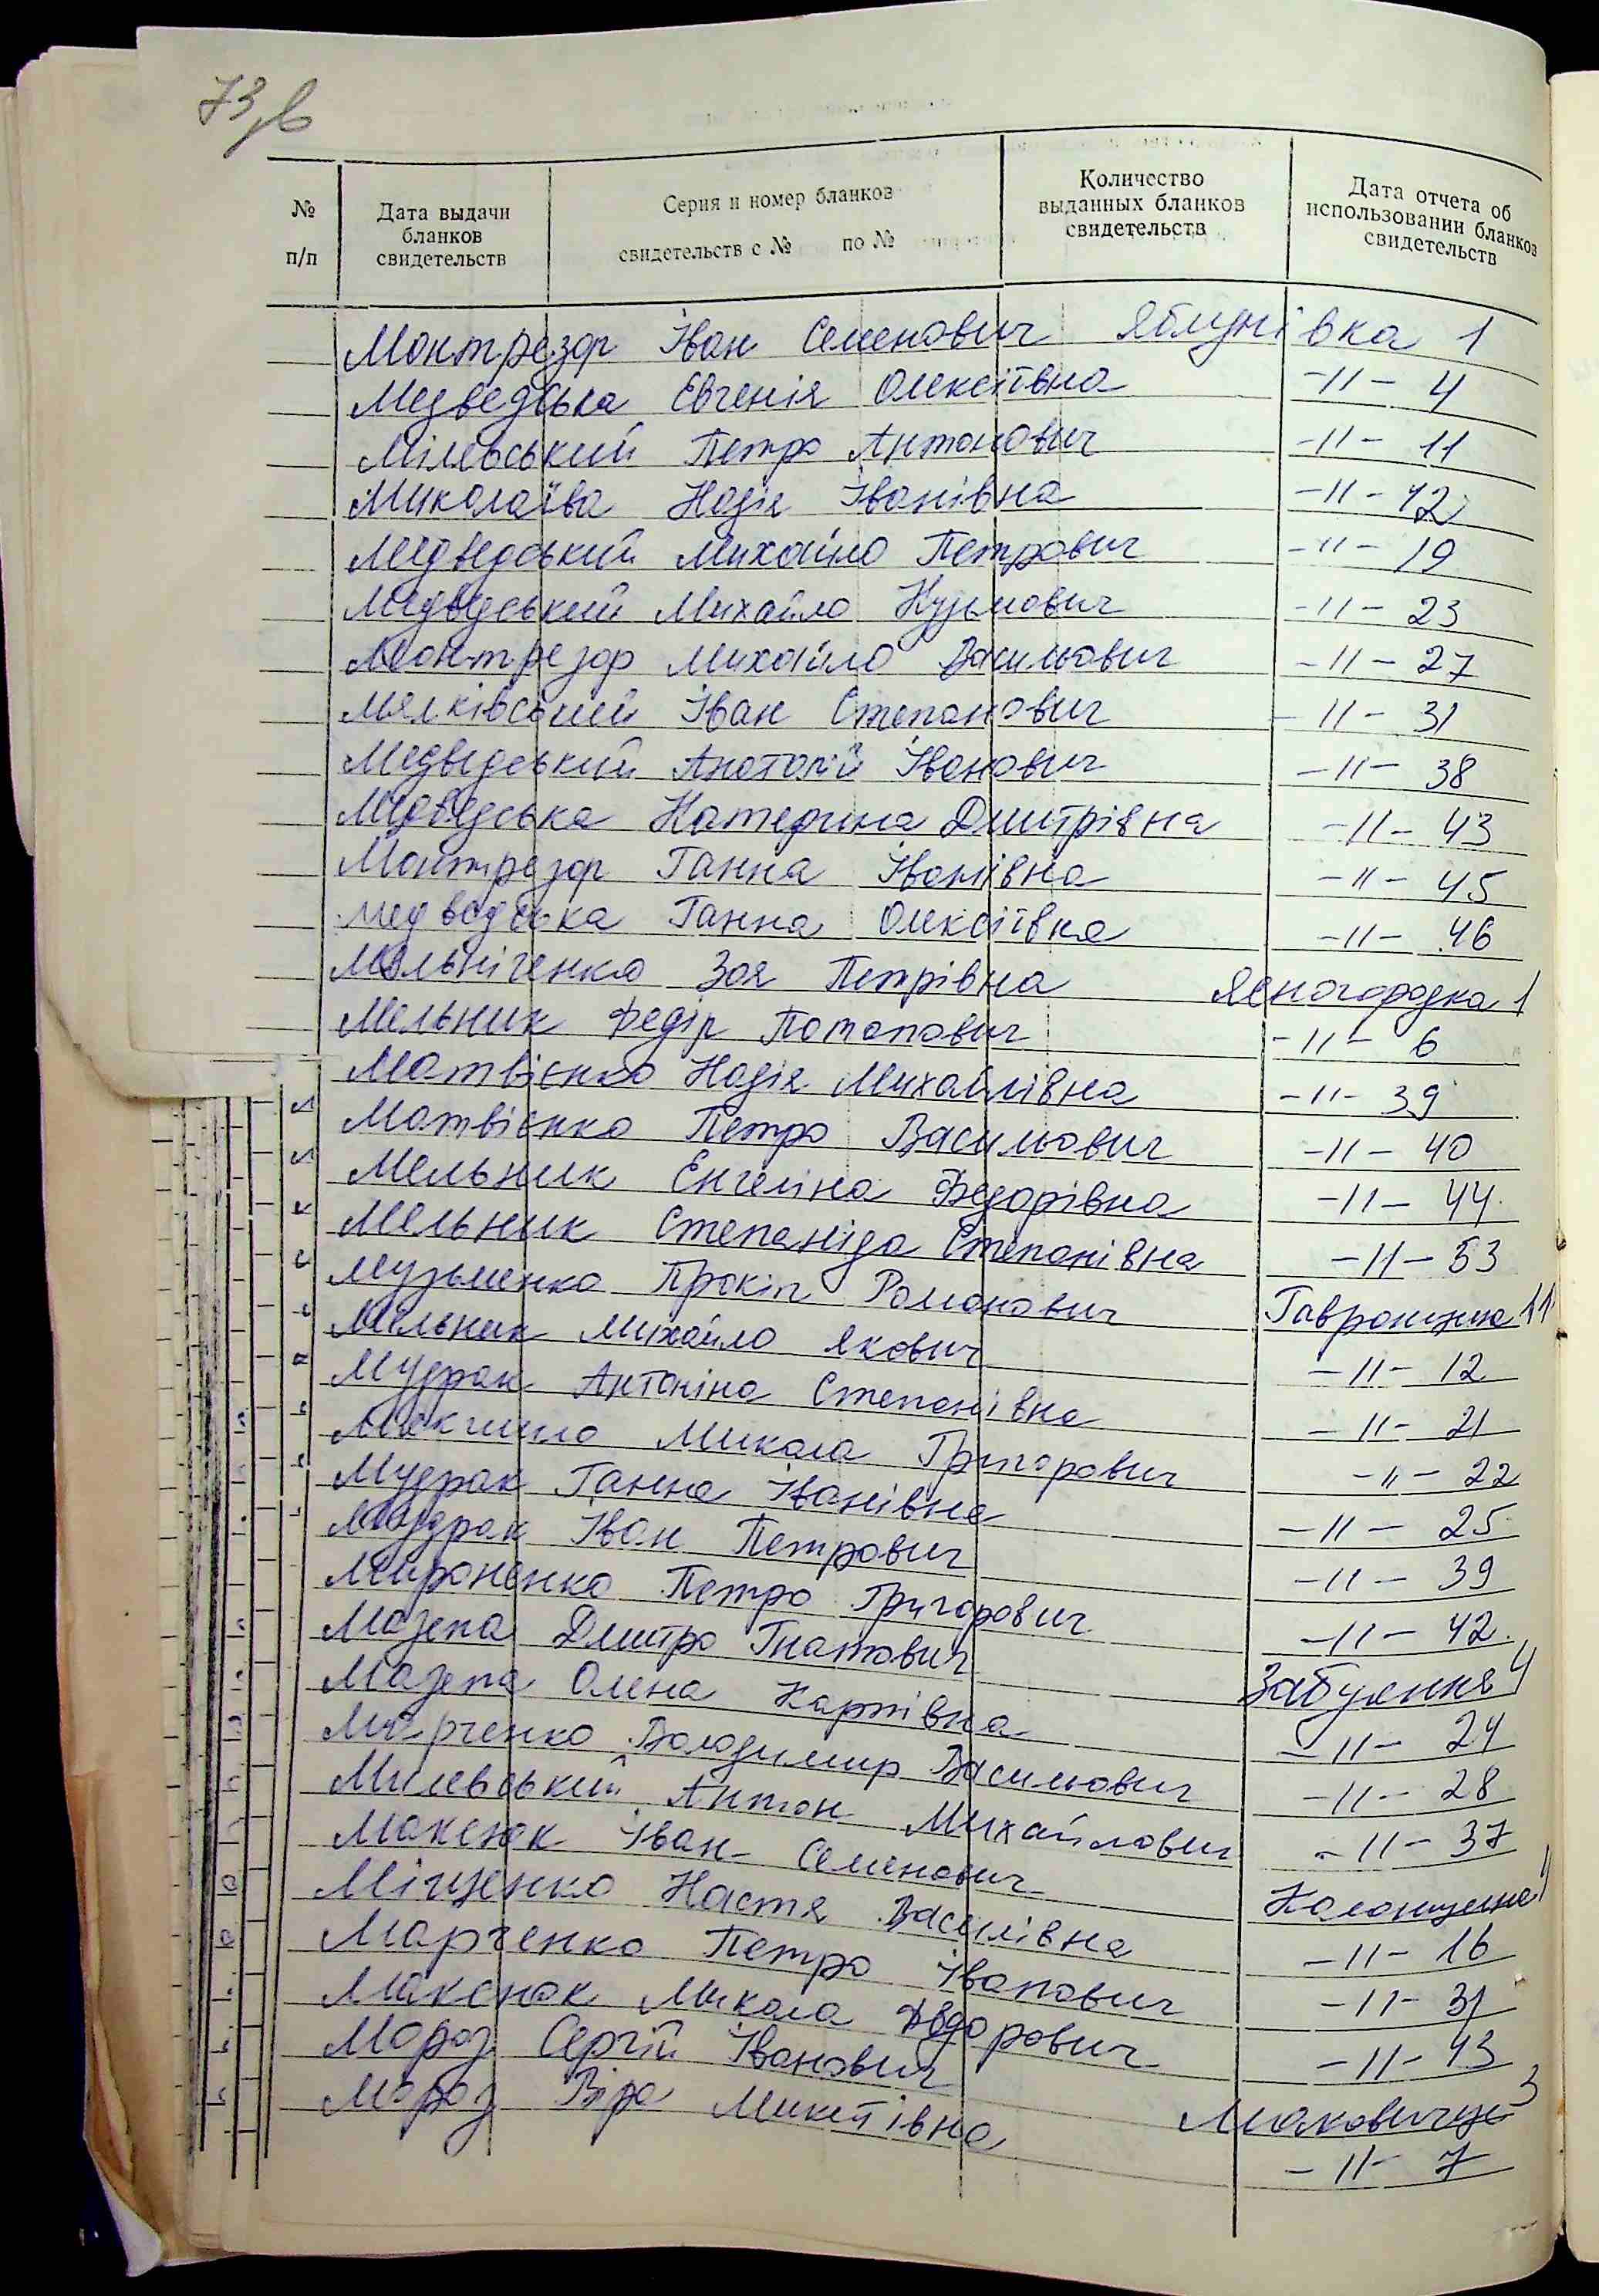 73зв
№ п/п
Дата выдачи бланков свидетельств
Серия и номер бланков свидетельств с № по №
Количество выданных бланков свидетельств
Дата отчета об использовании бланков свидетельств
Монтрезор Іван Семенович Яблунівка 1
Медведська Евгенія Олексіївна -11- 4
Мілевський Петро Антонович -11- 11
Миколаїва Надія Іванівна -11- 12
Медведський Михайло Петрович -11- 19
Медведський Михайло Кузьмович -11- 23
Монтрезор Михайло Васильович -11- 27
Мялківський Іван Степанович -11- 31
Медведський Анатолій Іванович -11- 38
Медведська Катерина Дмитрівна -11- 43
Монтрезор Ганна Іванівна -11- 45
Медведська Ганна Олексіївна -11- 46
Мельніченко Зоя Петрівна Ясногородка 1
Мельник Федір Потапович -11- 6
Матвієнко Надія Михайлівна -11- 39
Матвієнко Петро Васильович -11- 40
Мельник Енгеліна Федорівна -11- 44
Мельник Степаніда Степанівна -11- 53
Музьменко Прокіп Романович Гавронщина 11
Мельник Михайло Якович -11- 12
Мудрак Антоніна Степанівна -11- 21
Микола Григорович -11- 22
Мудрак Ганна Іванівна -11- 25
Мудрак Іван Петрович -11- 39
Мироненко Петро Григорович -11- 42
Мазепа Дмитро Гнатович Забуяння 4
Мазепа Олена Карпівна -11- 24
Марченко Володимир Васильович -11- 28
Милевський Антон Михайлович -11- 37
Максюк Іван Семенович Колонщина 1
Міщенко Настя Василівна -11- 16
Марченко Петро Іванович -11- 31
Максюк Микола Федорович -11- 43
Мороз Сергій Іванович Маковище 3
Мороз Віра Микитівна -11- 7